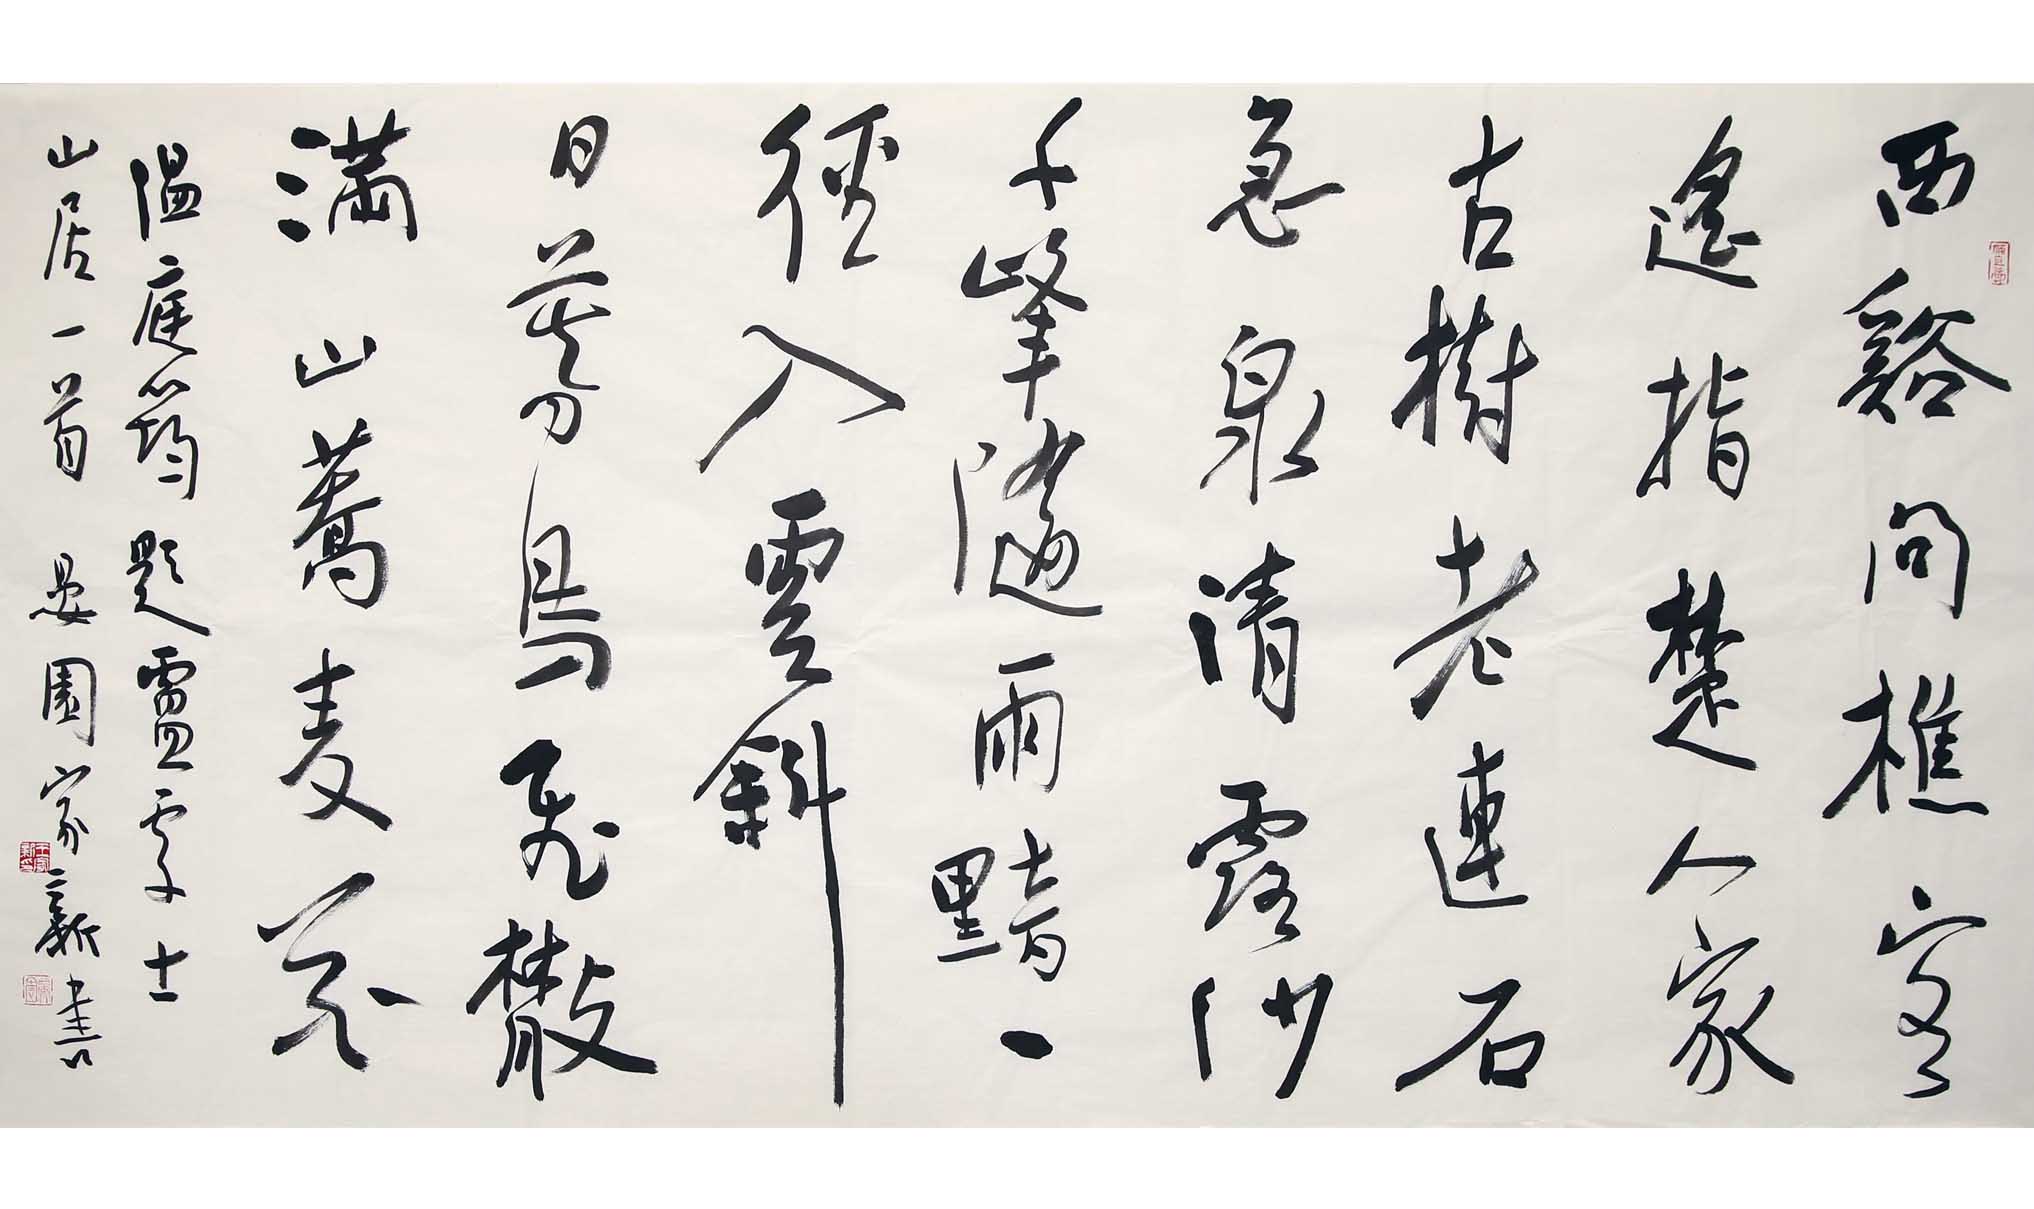 西谿問樵客
遙指楚人家
古樹老連石
急泉清露沙
千峰隨雨黯一
徑入雲斜
日暮鳥飛散
滿山蕎麥花
溫庭筠題盧處士
山居一首 晏園家新書